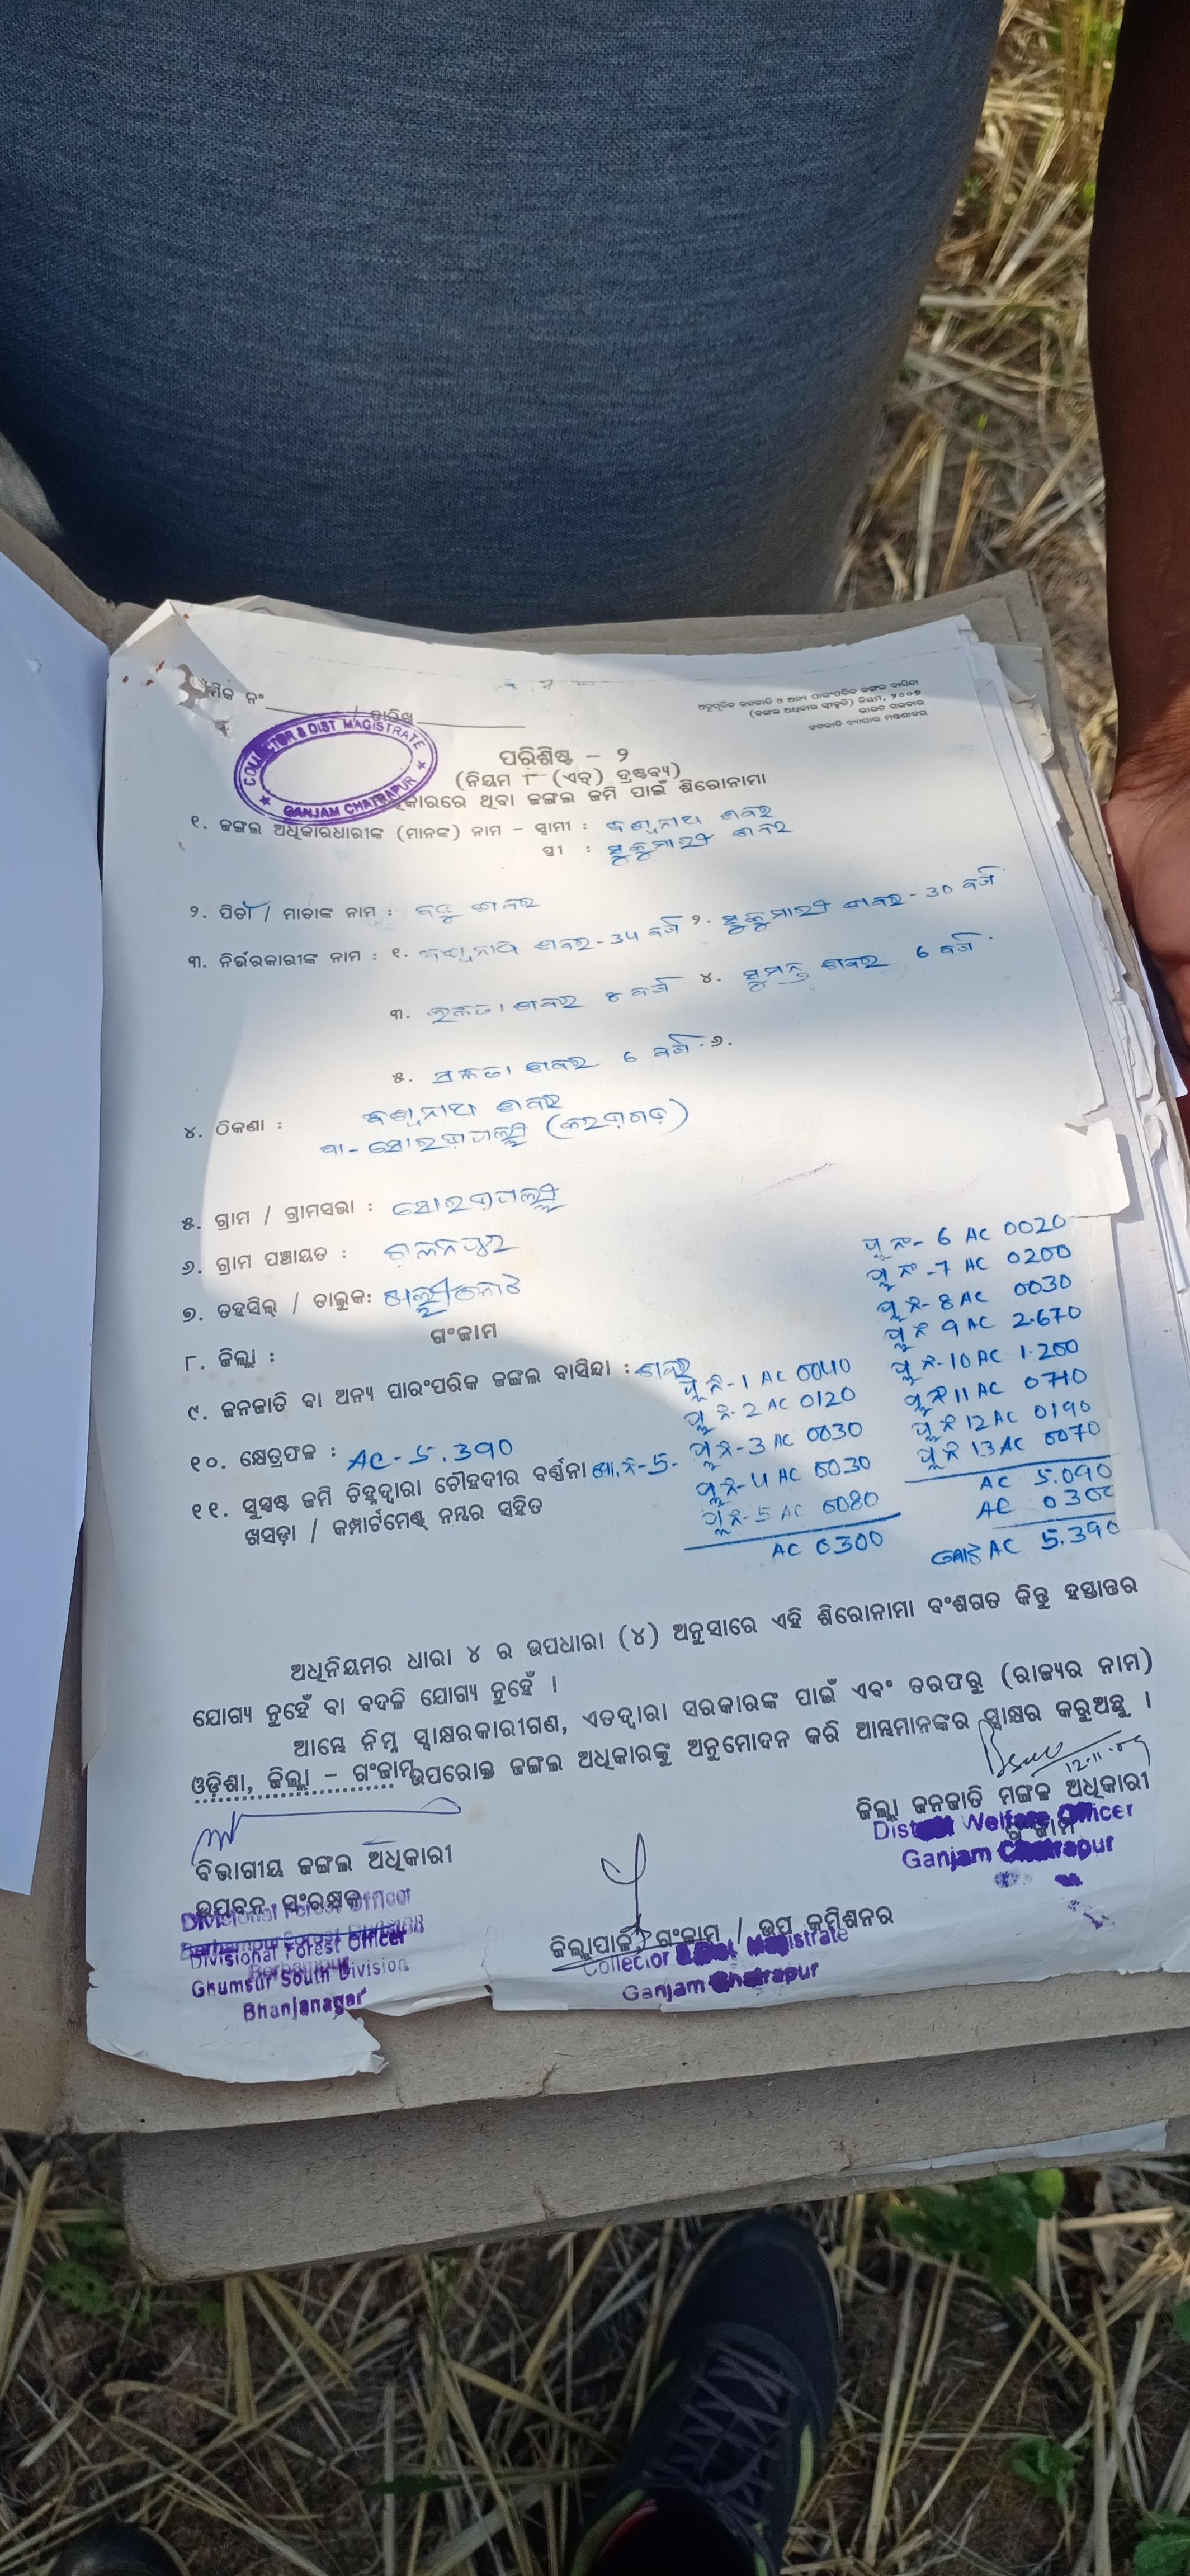 ମିକ ନଂ / ତାରିଖ
ଅନୁସୂଚିତ ଜନଜାତି ଓ ଅନ୍ୟ ପାରଂପରିକ ଜଙ୍ଗଲ ବାସିନ୍ଦା
(ଜଙ୍ଗଲ ଅଧିକାର ସ୍ୱୀକୃତି) ନିୟମ, ୨୦୦୭
ଭାରତ ସରକାର
ଜନଜାତି ବ୍ୟାପାର ମନ୍ତ୍ରଣାଳୟ
COLLECTOR & DIST MAGISTRATE
GANJAM CHATRAPUR
ପରିଶିଷ୍ଟ - ୨
(ନିୟମ ୮ (ଏଚ୍) ଦ୍ରଷ୍ଟବ୍ୟ)
ଧିକାରରେ ଥିବା ଜଙ୍ଗଲ ଜମି ପାଇଁ ଶିରୋନାମା
୧. ଜଙ୍ଗଲ ଅଧିକାରଧାରୀଙ୍କ (ମାନଙ୍କ) ନାମ - ସ୍ୱାମୀ : ଶବର
ସ୍ତ୍ରୀ : ସୁକୁମାରୀ ଶବର
୨. ପିତା / ମାତାଙ୍କ ନାମ : ଶବର
୩. ନିର୍ଭରକାରୀଙ୍କ ନାମ : ୧. ଶବର - 34 ବର୍ଷ ୨. ସୁକୁମାରୀ ଶବର - 30 ବର୍ଷ
୩. ଶବର ୫ ବର୍ଷ ୪. ସୁମନ୍ତ ଶବର 6 ବର୍ଷ
୫. ଶବର 6 ବର୍ଷ ୬.
୪. ଠିକଣା : ଶବର
୫. ଗ୍ରାମ / ଗ୍ରାମସଭା : ସୋରଡ଼ାପଲ୍ଲୀ
୬. ଗ୍ରାମ ପଞ୍ଚାୟତ :
୭. ତହସିଲ୍ / ତାଲୁକ:
୮. ଜିଲ୍ଲା : ଗଂଜାମ
୯. ଜନଜାତି ବା ଅନ୍ୟ ପାରଂପରିକ ଜଙ୍ଗଲ ବାସିନ୍ଦା : ଶବର
୧୦. କ୍ଷେତ୍ରଫଳ : AC - 5.390
୧୧. ସୁସ୍ପଷ୍ଟ ଜମି ଚିହ୍ନଦ୍ୱାରା ଚୌହଦୀର ବର୍ଣ୍ଣନା ଖା.ନଂ-5-
ଖସଡ଼ା / କମ୍ପାର୍ଟମେଣ୍ଟ ନମ୍ବର ସହିତ
ପ୍ଲ ନଂ-1 AC 0040
ପ୍ଲ ନଂ-2 AC 0120
ପ୍ଲ ନଂ-3 AC 0030
ପ୍ଲ ନଂ-4 AC 0030
ପ୍ଲ ନଂ-5 AC 0080
AC 0300
ପ୍ଲ ନଂ-6 AC 0020
ପ୍ଲ ନଂ-7 AC 0200
ପ୍ଲ ନଂ-8 AC 0030
ପ୍ଲ ନଂ 9 AC 2.670
ପ୍ଲ ନଂ-10 AC 1.200
ପ୍ଲ ନଂ 11 AC 0710
ପ୍ଲ ନଂ 12 AC 0190
ପ୍ଲ ନଂ 13 AC 0070
AC 5.090
AC 0300
ମୋଟ AC 5.390
ଅଧିନିୟମର ଧାରା ୪ ର ଉପଧାରା (୪) ଅନୁସାରେ ଏହି ଶିରୋନାମା ବଂଶଗତ କିନ୍ତୁ ହସ୍ତାନ୍ତର
ଯୋଗ୍ୟ ନୁହେଁ ବା ବଦଳି ଯୋଗ୍ୟ ନୁହେଁ ।
ଆମ୍ଭେ ନିମ୍ନ ସ୍ୱାକ୍ଷରକାରୀଗଣ, ଏତଦ୍ୱାରା ସରକାରଙ୍କ ପାଇଁ ଏବଂ ତରଫରୁ (ରାଜ୍ୟର ନାମ)
ଓଡ଼ିଶା, ଜିଲ୍ଲା - ଗଂଜାମ ଉପରୋକ୍ତ ଜଙ୍ଗଲ ଅଧିକାରଙ୍କୁ ଅନୁମୋଦନ କରି ଆମ୍ଭମାନଙ୍କର ସ୍ୱାକ୍ଷର କରୁଅଛୁ ।
ବିଭାଗୀୟ ଜଙ୍ଗଲ ଅଧିକାରୀ
ଉପବନ ସଂରକ୍ଷକ
Divisional Forest Officer
Divisional Forest Officer
Ghumsur South Division
Bhanjanagar
ଜିଲ୍ଲାପାଳ, ଗଂଜାମ / ଉପ କମିଶନର
Collector & Dist. Magistrate
Ganjam Chatrapur
ଜିଲ୍ଲା ଜନଜାତି ମଙ୍ଗଳ ଅଧିକାରୀ
ଗଂଜାମ
District Welfare Officer
Ganjam Chatrapur